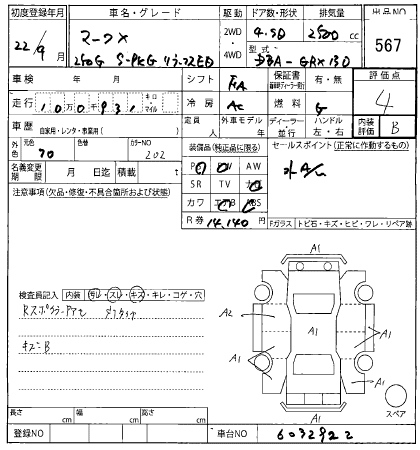 初度登録年月 車名・グレード 駆動 ドア数・形状 排気量 出品NO
22/9月 マークX 2WD・4WD 4.SD 2500 cc 567
250G S-PKG 型式 DBA-GRX130
車検 年 月 シフト FA 保証書 有・無 評価点
走行 10万0千931 キロ・マイル 冷房 AC 燃料 G 4
車歴 自家用・レンタ・事業用( ) 定員 人 外車モデル 年 ディーラー・並行 ハンドル 左・右 内装評価 B
外色 元色 70 色替 カラーNO 202 装備品(純正品に限る) セールスポイント(正常に動作するもの)
名義変更期限 月 日迄 積載 t PS PW AW
注意事項(欠品・修復・不具合箇所および状態) SR TV ナビ
カワ エアB ABS
R券 14,140円 Fガラス トビ石・キズ・ヒビ・ワレ・リペア跡
A1
検査員記入 内装 汚レ・スレ・キズ・キレ・コゲ・穴
A2 A1 A1
キズ=B
A1 A1
A1
スペア
長さ cm 幅 cm 高さ cm
登録NO 車台NO 6032922